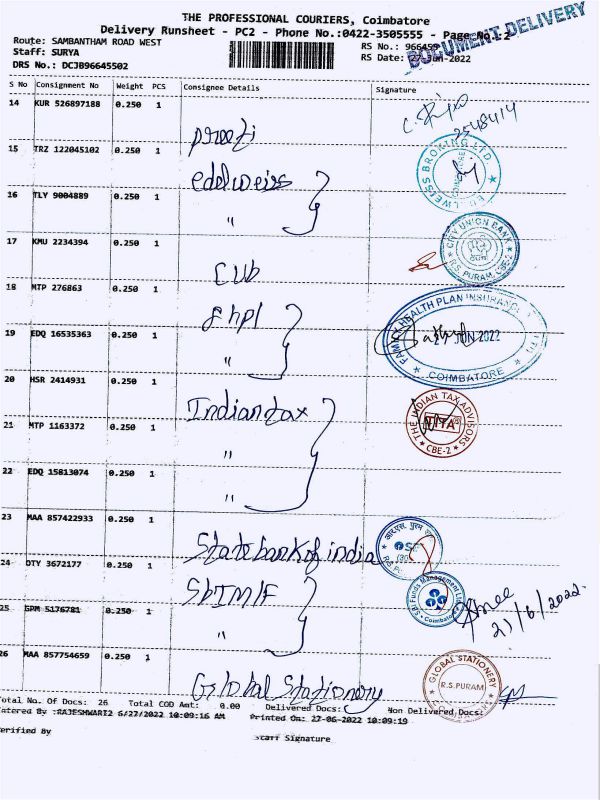 THE PROFESSIONAL COURIERS, Coimbatore
Delivery Runsheet - PC2 - Phone No.:0422-3505555 - Page No.: 2
DOCUMENT DELIVERY
Route: SAMBANTHAM ROAD WEST
RS No.: 966455
Staff: SURYA
RS Date: 27-Jun-2022
DRS No.: DCJB96645502
S No Consignment No Weight PCS Consignee Details Signature
14 KUR 526897188 0.250 1
preeti
2548414
15 TRZ 122045102 0.250 1
edelweiss
EDELWEISS BROKING LTD.
16 TLY 9004889 0.250 1
"
17 KMU 2234394 0.250 1
CUB
CITY UNION BANK
R.S. PURAM, CBE-2
18 MTP 276863 0.250 1
fhpl
FAMILY HEALTH PLAN INSURANCE
JUN 2022
COIMBATORE
19 EDQ 16535363 0.250 1
"
20 HSR 2414931 0.250 1
Indian tax
THE INDIAN TAX ADVISORS
TITA
CBE-2
21 MTP 1163372 0.250 1
"
22 EDQ 15813074 0.250 1
"
23 MAA 857422933 0.250 1
State bank of india
आर.एस. पुरम
24 DTY 3672177 0.250 1
SbIMF
SBI Funds Management Ltd
Coimbatore
25 GPM 5176781 0.250 1
"
27/6/2022
26 MAA 857754659 0.250 1
Global Stationery
GLOBAL STATIONERY
R.S.PURAM
COIMBATORE
Total No. Of Docs: 26 Total COD Amt: 0.00 Delivered Docs: Non Delivered Docs:
ntered By :RAJESHWARI2 6/27/2022 10:09:16 AM Printed On: 27-06-2022 10:09:19
erified By
Staff Signature